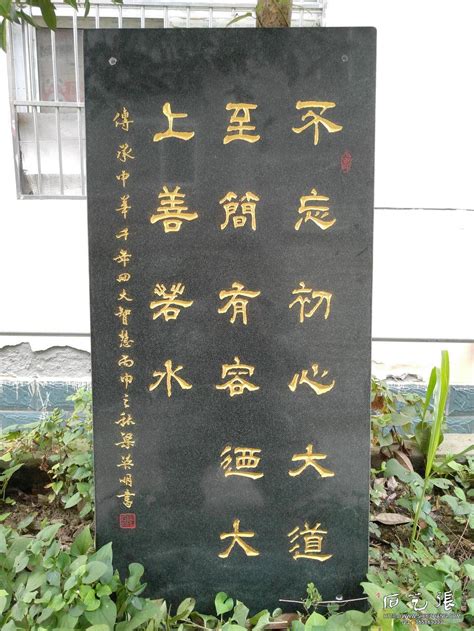 不忘初心大道
至簡有容迺大
上善若水
傳承中華千年四大智慧丙申之秋梁英明書